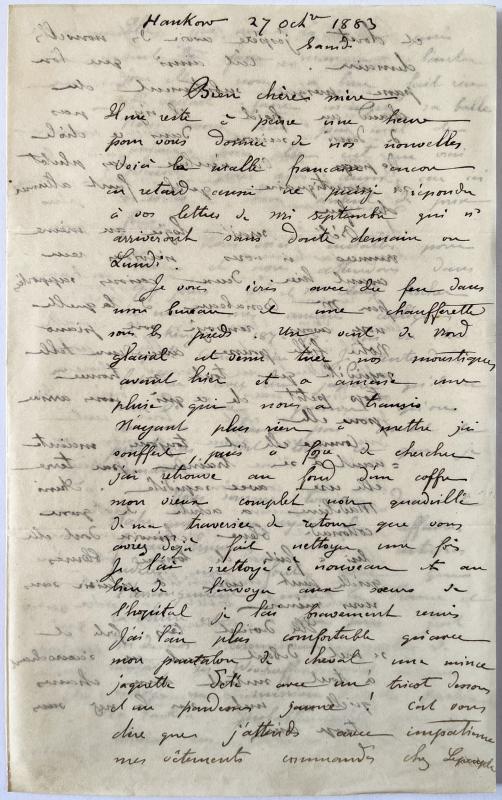 Hankow 27 Octbre 1883
Samdi
Bien chère mère
Il me reste à peine une heure
pour vous donner de nos nouvelles.
Voici la malle française encore
en retard aussi ne puis-je répondre
à vos lettres de mi septembre qui n'
arriveront sans doute demain ou
Lundi.
Je vous écris avec du feu dans
mon bureau et une chaufferette
sous les pieds. Un vent de nord
glacial est venu tuer nos moustiques
avant hier et a amené une
pluie qui nous a transis.
N'ayant plus rien à mettre j'ai
souffert, puis à force de chercher
j'ai retrouvé au fond d'un coffre
mon vieux complet noir quadrillé
de ma traversée de retour que vous
avez déjà fait nettoyer une fois
Je l'ai nettoyé à nouveau et au
lieu de l'envoyer aux sœurs de
l'hôpital je l'ai bravement remis
J'ai l'air plus comfortable qu'avec
mon pantalon de cheval une mince
jaquette d'été avec un tricot dessous
et un pardessus jaune ! c'est vous
dire que j'attends avec impatience
mes vêtements commandés chez